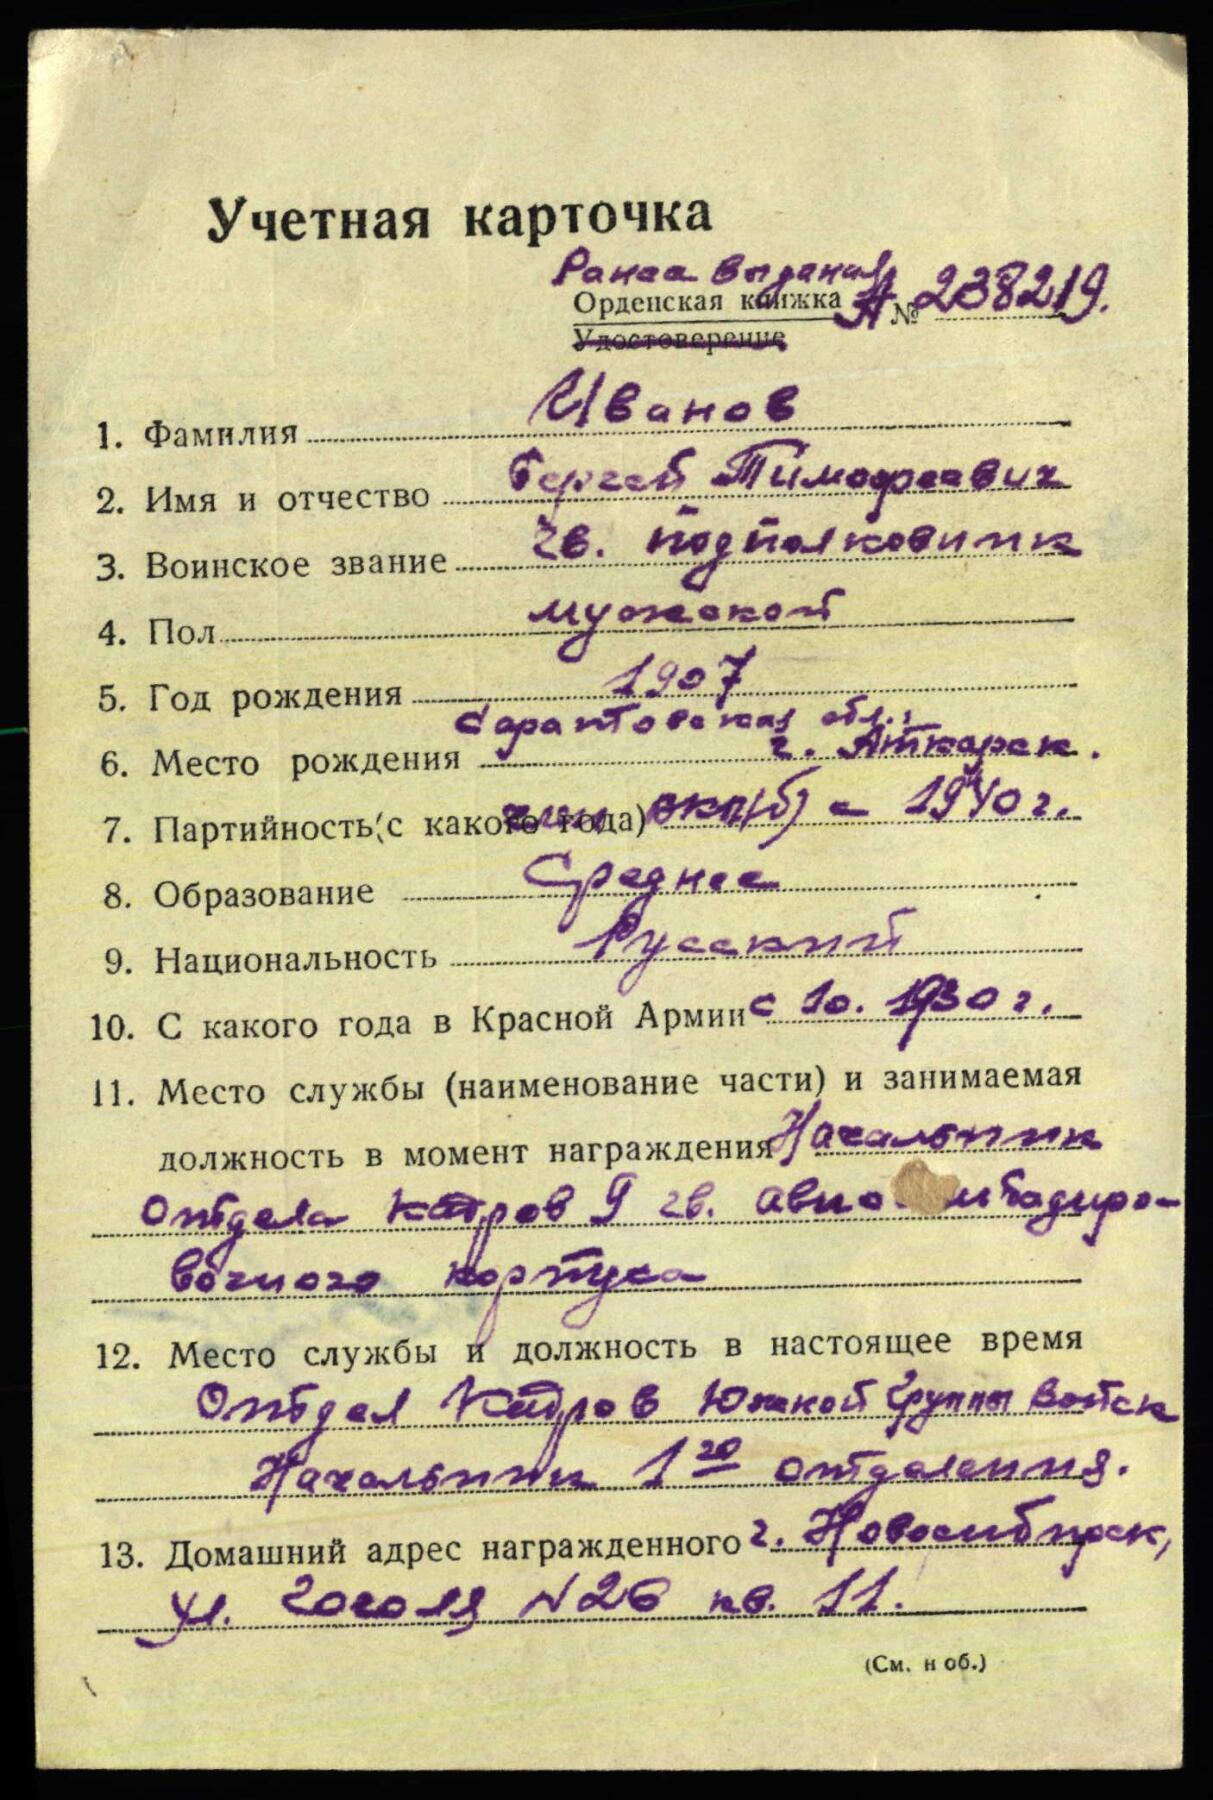 Учетная карточка
Ранее выданная
Орденская книжка А № 238219.
Удостоверение
Иванов
1. Фамилия
2. Имя и отчество Сергей Тимофеевич
3. Воинское звание гв. подполковник
4. Пол мужской
5. Год рождения 1907
Саратовская обл.,
6. Место рождения г. Аткарск.
7. Партийность (с какого года) член ВКП(б) с 1940 г.
8. Образование Среднее
9. Национальность Русский
10. С какого года в Красной Армии с 10. 1930 г.
11. Место службы (наименование части) и занимаемая
должность в момент награждения Начальник
Отдела Кадров гв. авио
вочного корпуса
12. Место службы и должность в настоящее время
Отдел Кадров Южной Группы Войск
Начальник 1го отделения.
13. Домашний адрес награжденного г. Новосибирск,
ул. Гоголя N 26 кв. 11.
(См. н об.)